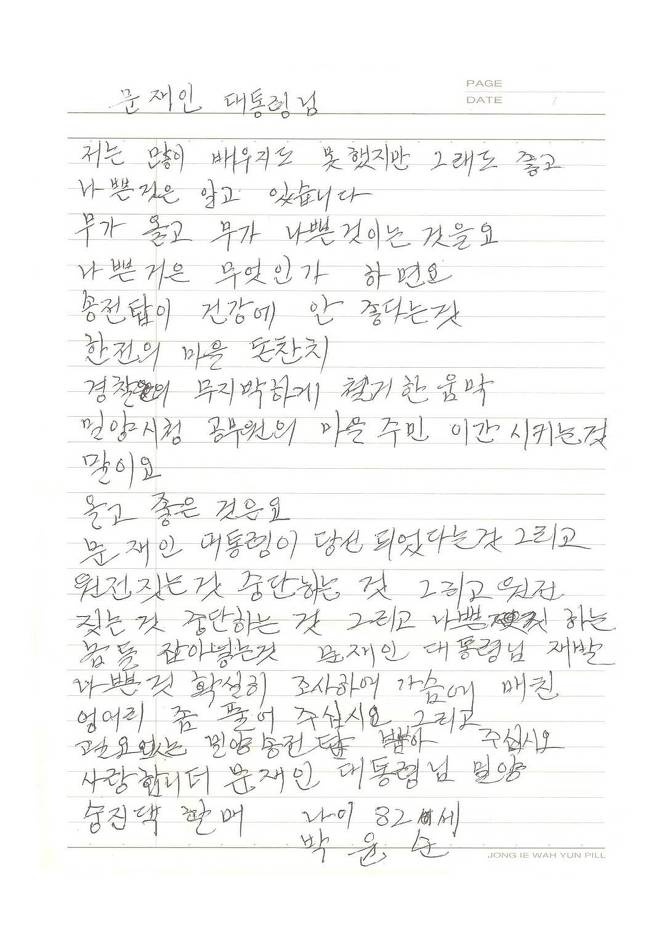 PAGE
DATE /
문재인 대통령님
저는 많이 배우지도 못했지만 그래도 좋고
나쁜것은 알고 있습니다
무가 올고 무가 나쁜것이는 것을요
나쁜거은 무엇인가 하면요
송전탑이 건강에 안 좋다는것
한전의 마을 돈찬치
경찰의 무지박하게 철거한 움막
밀양시청 공무원의 마을 주민 이간 시키는것
말이요
올고 좋은 것은요
문재인 대통령이 당선 되었다는것 그리고
원전짓는것 중단하는 것 그리고 원전
짓는것 중단하는 것 그리고 나쁜 하는
놈들 잡아넣는것 문재인 대통령님 제발
나쁜것 확실히 조사하여 가슴에 매친
엉어리 좀 풀어 주십시요 그리고
필요없는 밀양송전탑 뽑아 주십시요
사랑합니더 문재인 대통령님 밀양
할매 나이 82세
박윤순
JONG IE WAH YUN PILL